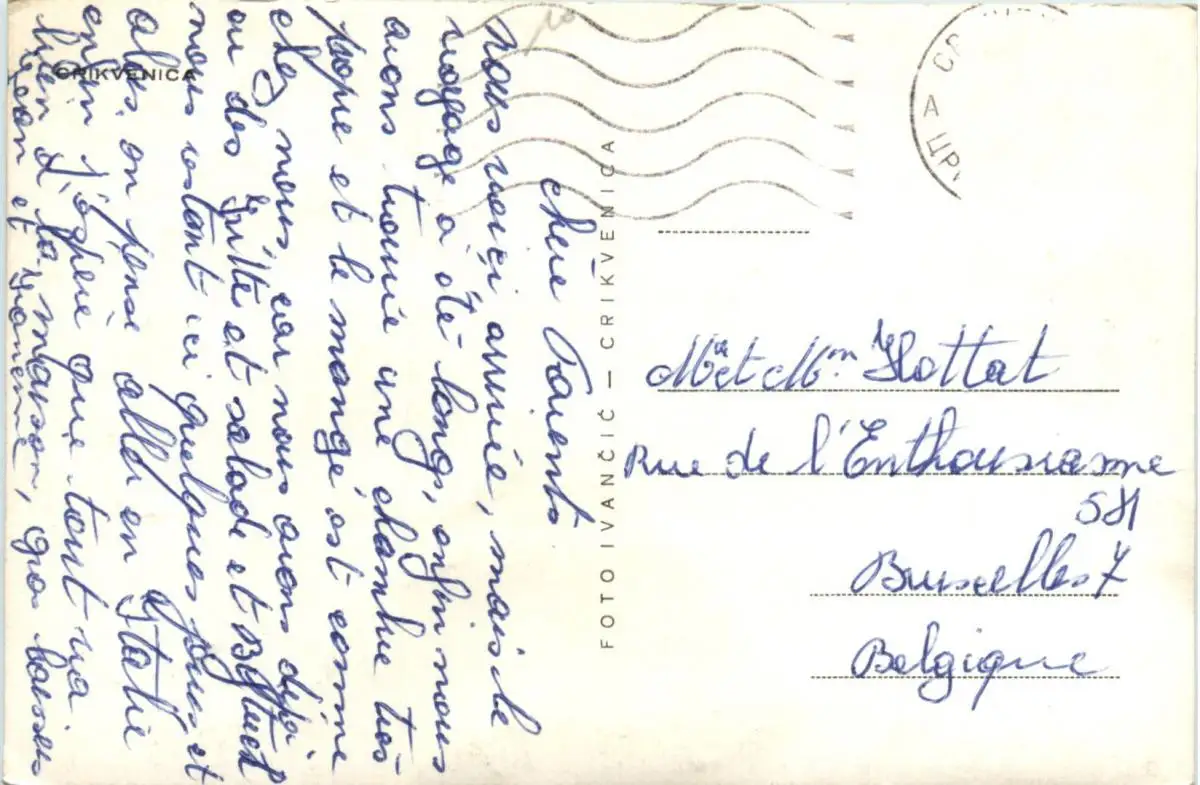 CRIKVENICA
chère Parents
Nous voici arrivée, mais le
voyage a été long, enfin nous
avons trouvé une chambre très
propre et le mangé est comme
chez nous, car nous avons déjà
eu des frite et salade et Bestuck
nous restont ici quelques jours et
alors on pense allér en Italie
enfin j'éspère que tout va
bien à la maison, gros baisers
Jean et
FOTO IVANČIĆ — CRIKVENICA
Mr et Mme Hottat
Rue de l'Enthousiasme
58
Bruxelles 7
Belgique